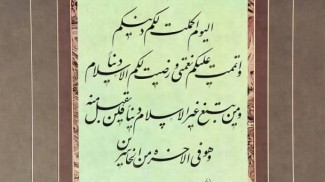 الیوم اکملت لکم دینکم
واتممت علیکم نعمتی و رضیت لکم الاسلام دیناً
ومن یبتغ غیر الاسلام دیناً فلن یقبل منه
وهو فی الاخرة من الخاسرین